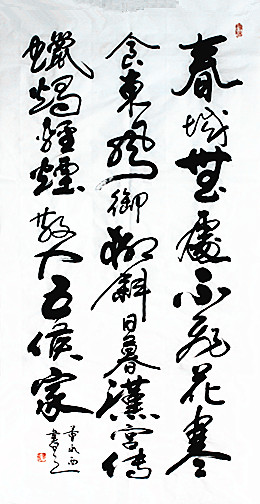 春城無處不飛花寒
食東風御柳斜日暮漢宮传
蠟燭輕煙散入五侯家